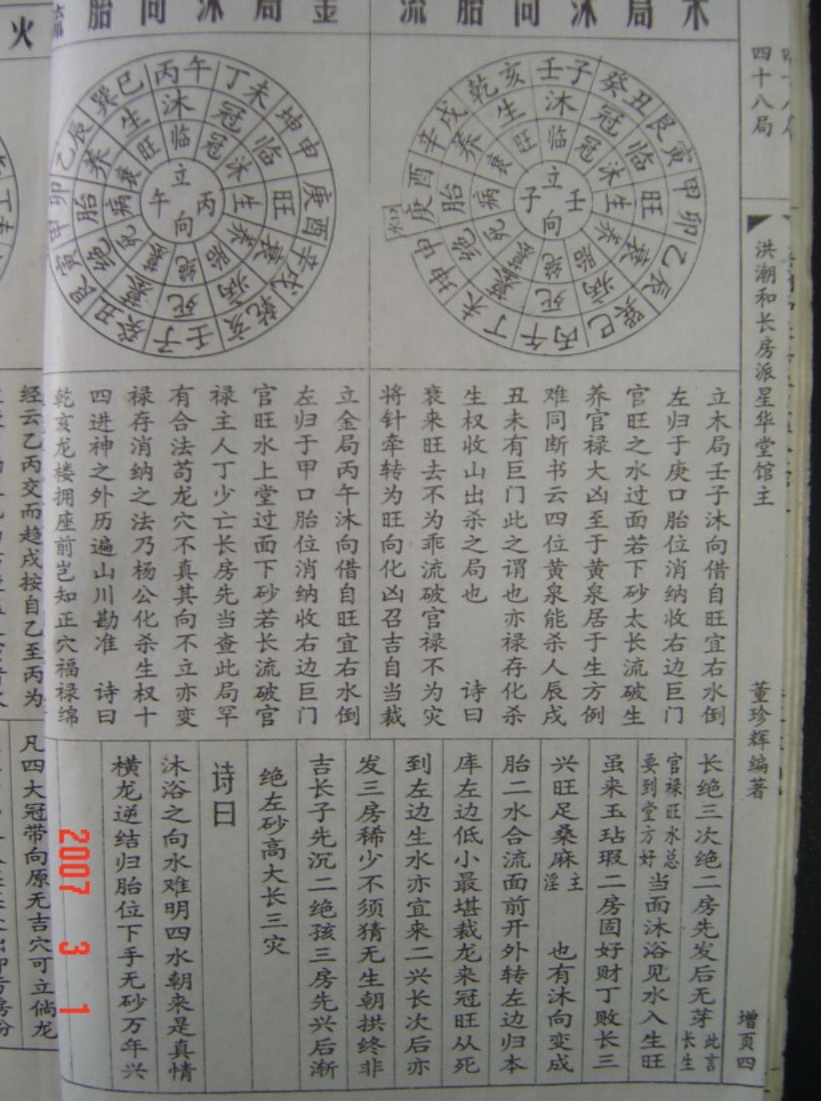 四十八局
洪潮和长房派星华堂馆主
董珍辉编著
增页四
木局沐向胎流
金局沐向胎流
火
壬子
癸丑
艮寅
甲卯
乙辰
巽巳
丙午
丁未
坤申
庚酉
辛戌
乾亥
沐
冠
临
旺
衰
病
死
墓
绝
胎
养
生
临
冠
沐
生
养
胎
绝
墓
死
病
衰
旺
立壬向子
水口
丙午
丁未
坤申
庚酉
辛戌
乾亥
壬子
癸丑
艮寅
甲卯
乙辰
巽巳
沐
冠
临
旺
衰
病
死
墓
绝
胎
养
生
临
冠
沐
生
养
胎
绝
墓
死
病
衰
旺
立丙向午
立木局壬子沐向借自旺宜右水倒
左归于庚口胎位消纳收右边巨门
官旺之水过面若下砂太长流破生
养官禄大凶至于黄泉居于生方例
难同断书云四位黄泉能杀人辰戌
丑未有巨门此之谓也亦禄存化杀
生权收山出杀之局也 诗曰
衰来旺去不为乖流破官禄不为灾
将针牵转为旺向化凶召吉自当裁
立金局丙午沐向借自旺宜右水倒
左归于甲口胎位消纳收右边巨门
官旺水上堂过面下砂若长流破官
禄主人丁少亡长房先当查此局罕
有合法苟龙穴不真其向不立亦变
禄存消纳之法乃杨公化杀生权十
四进神之外历遍山川勘准 诗曰
乾亥龙楼拥座前岂知正穴福禄绵
经云乙丙交而趋戌按自乙至丙为
长绝三次绝二房先发后无芽此言长生
官禄旺水总要到堂方好当面沐浴见水入生旺
虽来玉玷瑕二房固好财丁败长三
兴旺足桑麻主淫 也有沐向变成
胎二水合流面前开外转左边归本
库左边低小最堪裁龙来冠旺从死
到左边生水亦宜来二兴长次后亦
发三房稀少不须猜无生朝拱终非
吉长子先沉二绝孩三房先兴后渐
绝左砂高大长三灾
诗曰
沐浴之向水难明四水朝来是真情
横龙逆结归胎位下手无砂万年兴
凡四大冠带向原无吉穴可立倘龙
2007 3 1